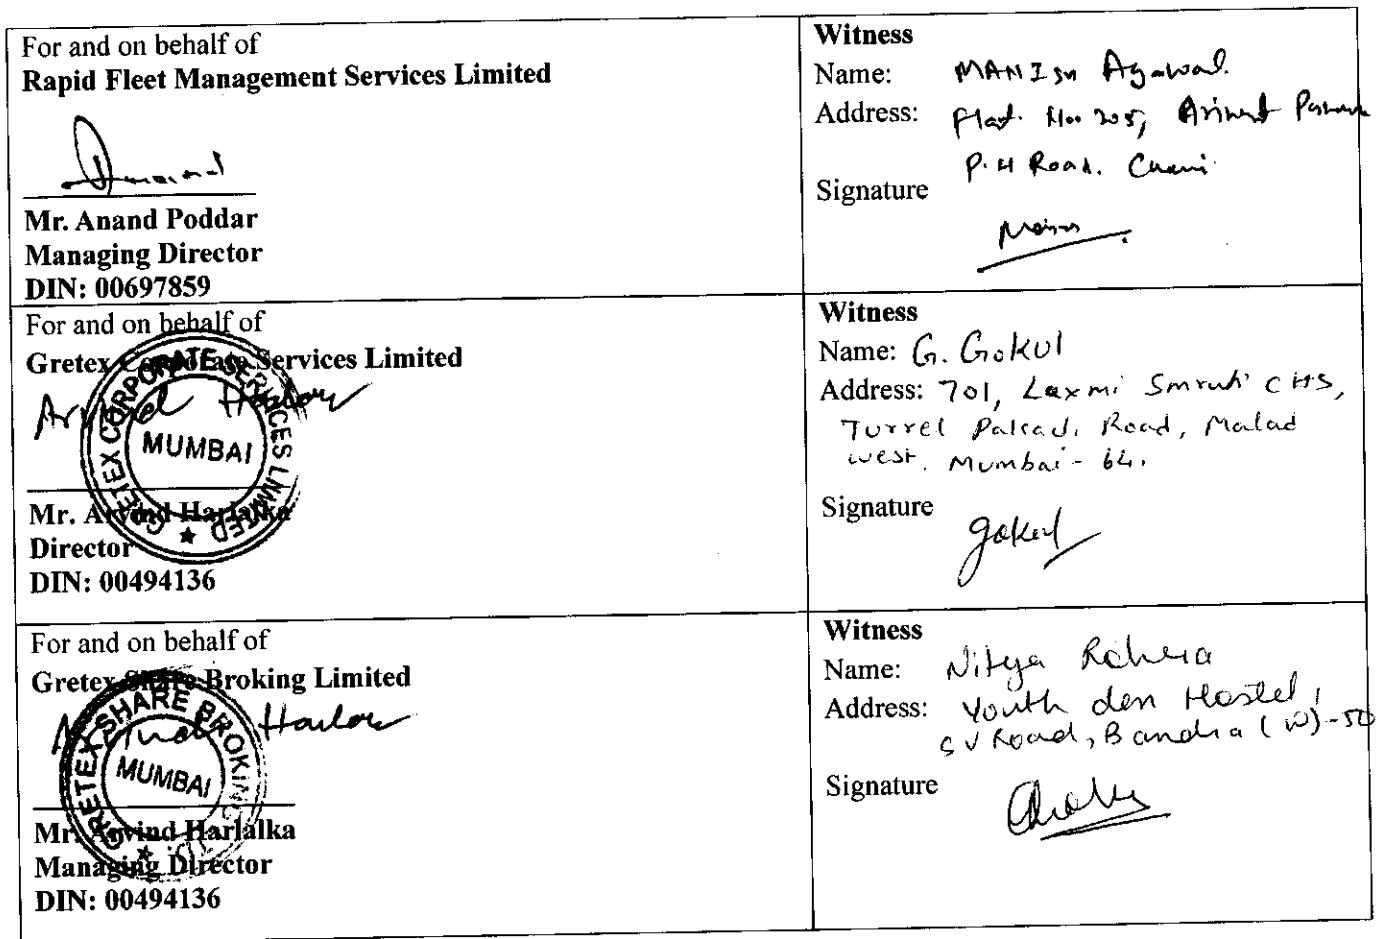 For and on behalf of
Rapid Fleet Management Services Limited
Mr. Anand Poddar
Managing Director
DIN: 00697859
Witness
Name: MANISH Agarwal.
Address: Flat. No. 205,
P.H Road.
Signature
For and on behalf of
Gretex Corporate Services Limited
Arvind Harlalka
GRETEX CORPORATE SERVICES LIMITED
MUMBAI
Mr. Arvind Harlalka
Director
DIN: 00494136
Witness
Name: G. Gokul
Address: 701, Laxmi Smruti CHS,
Road, Malad
west. Mumbai - 64.
Signature
Gokul
For and on behalf of
Gretex Share Broking Limited
Arvind Harlalka
GRETEX SHARE BROKING
MUMBAI
Mr. Arvind Harlalka
Managing Director
DIN: 00494136
Witness
Name: Nitya
Address: Youth den Hostel,
S V Road, Bandra (W)-50
Signature